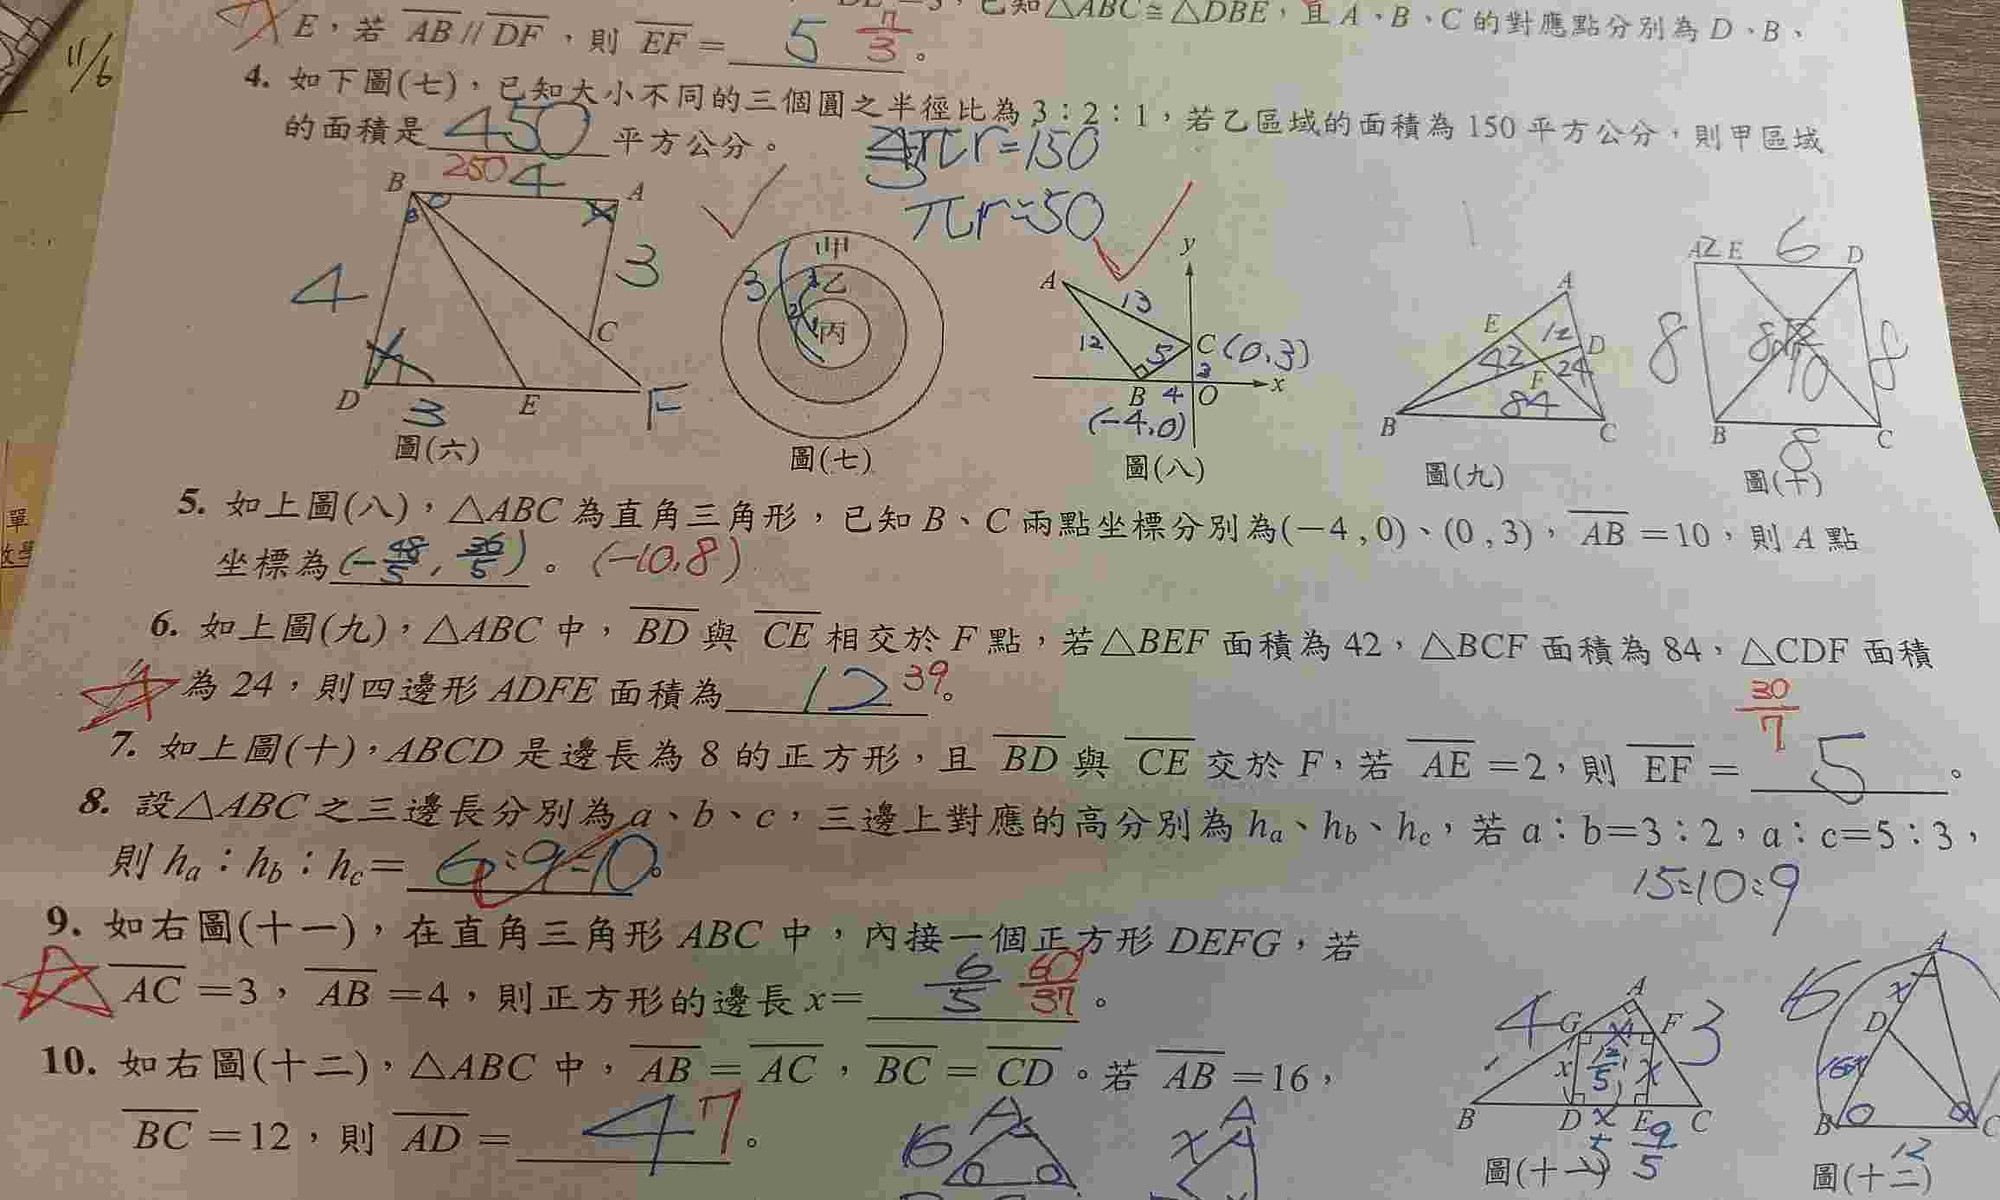 11/6
E，若 AB // DF，則 EF = 5 7/3 。
已知△ABC≅△DBE，且 A、B、C 的對應點分別為 D、B、
4. 如下圖(七)，已知大小不同的三個圓之半徑比為 3：2：1，若乙區域的面積為 150 平方公分，則甲區域
的面積是 450 平方公分。
250
πr=150
πr=50
B 4 A
4 3
C
D 3 E F
圖(六)
甲
3 乙
2 1 丙
圖(七)
y
A 13
12 5 C (0,3)
3
B 4 O x
(-4,0)
圖(八)
A
E 12 D
42 F 24
84
B C
圖(九)
A 2 E 6 D
8 8
10
B 8 C
圖(十)
5. 如上圖(八)，△ABC 為直角三角形，已知 B、C 兩點坐標分別為(−4 , 0)、(0 , 3)，AB =10，則 A 點
坐標為 (-48/5 , 36/5) 。 (-10,8)
6. 如上圖(九)，△ABC 中，BD 與 CE 相交於 F 點，若△BEF 面積為 42，△BCF 面積為 84，△CDF 面積
為 24，則四邊形 ADFE 面積為 12 39 。
7. 如上圖(十)，ABCD 是邊長為 8 的正方形，且 BD 與 CE 交於 F，若 AE =2，則 EF = 5 30/7 。
8. 設△ABC 之三邊長分別為 a、b、c，三邊上對應的高分別為 ha、hb、hc，若 a：b=3：2，a：c=5：3，
則 ha：hb：hc= 6:9=10 。
15:10:9
9. 如右圖(十一)，在直角三角形 ABC 中，內接一個正方形 DEFG，若
AC =3，AB =4，則正方形的邊長 x= 6/5 60/37 。
10. 如右圖(十二)，△ABC 中，AB = AC，BC = CD。若 AB =16，
BC =12，則 AD = 4 7 。
A
4 G F 3
x 12/5 x
B D x E C
9/5
圖(十一)
A
16 x
D
B C
12
圖(十二)
A
16
A
x
單